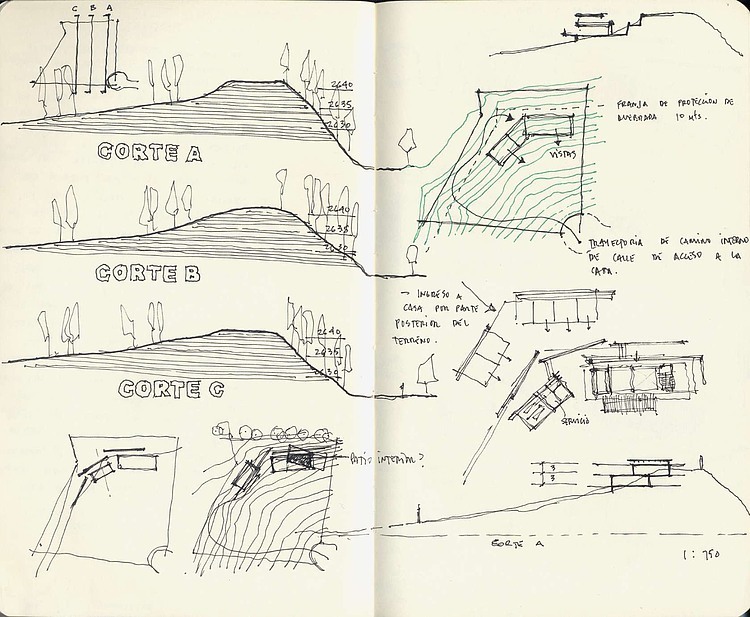 C B A
2640
2635
2630
CORTE A
2640
2635
2630
CORTE B
2640
2635
2630
CORTE C
FRANJA DE PROTECCION DE
QUEBRADA 10 MTS.
VISTAS
TRAYECTORIA DE CAMINO INTERNO
DE CALLE DE ACCESO A LA
CASA.
- INGRESO A
CASA POR PARTE
POSTERIOR DEL
TERRENO.
SERVICIO
PATIO INTERIOR?
3
3
CORTE A
1:750